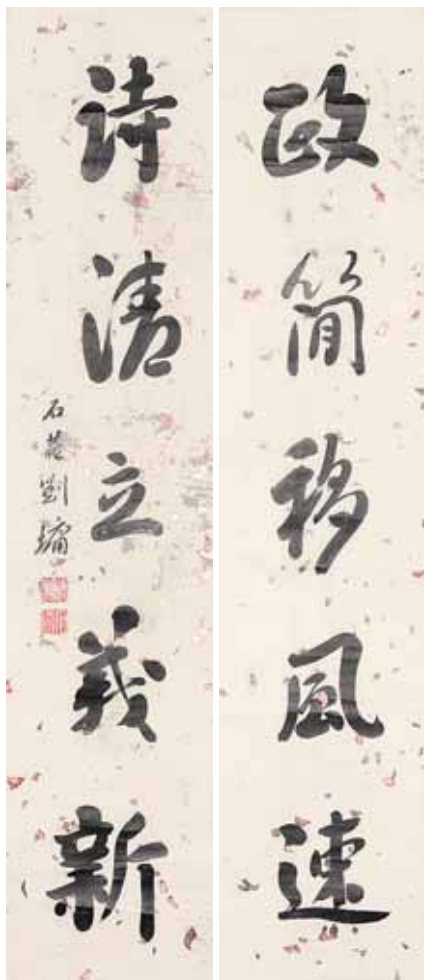 政簡移風速
詩清立義新
石菴劉墉